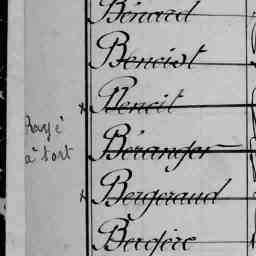 Bénard
Benoist
x Benoit
Rayé
à tort
Béranger
x Bergeraud
Bergère